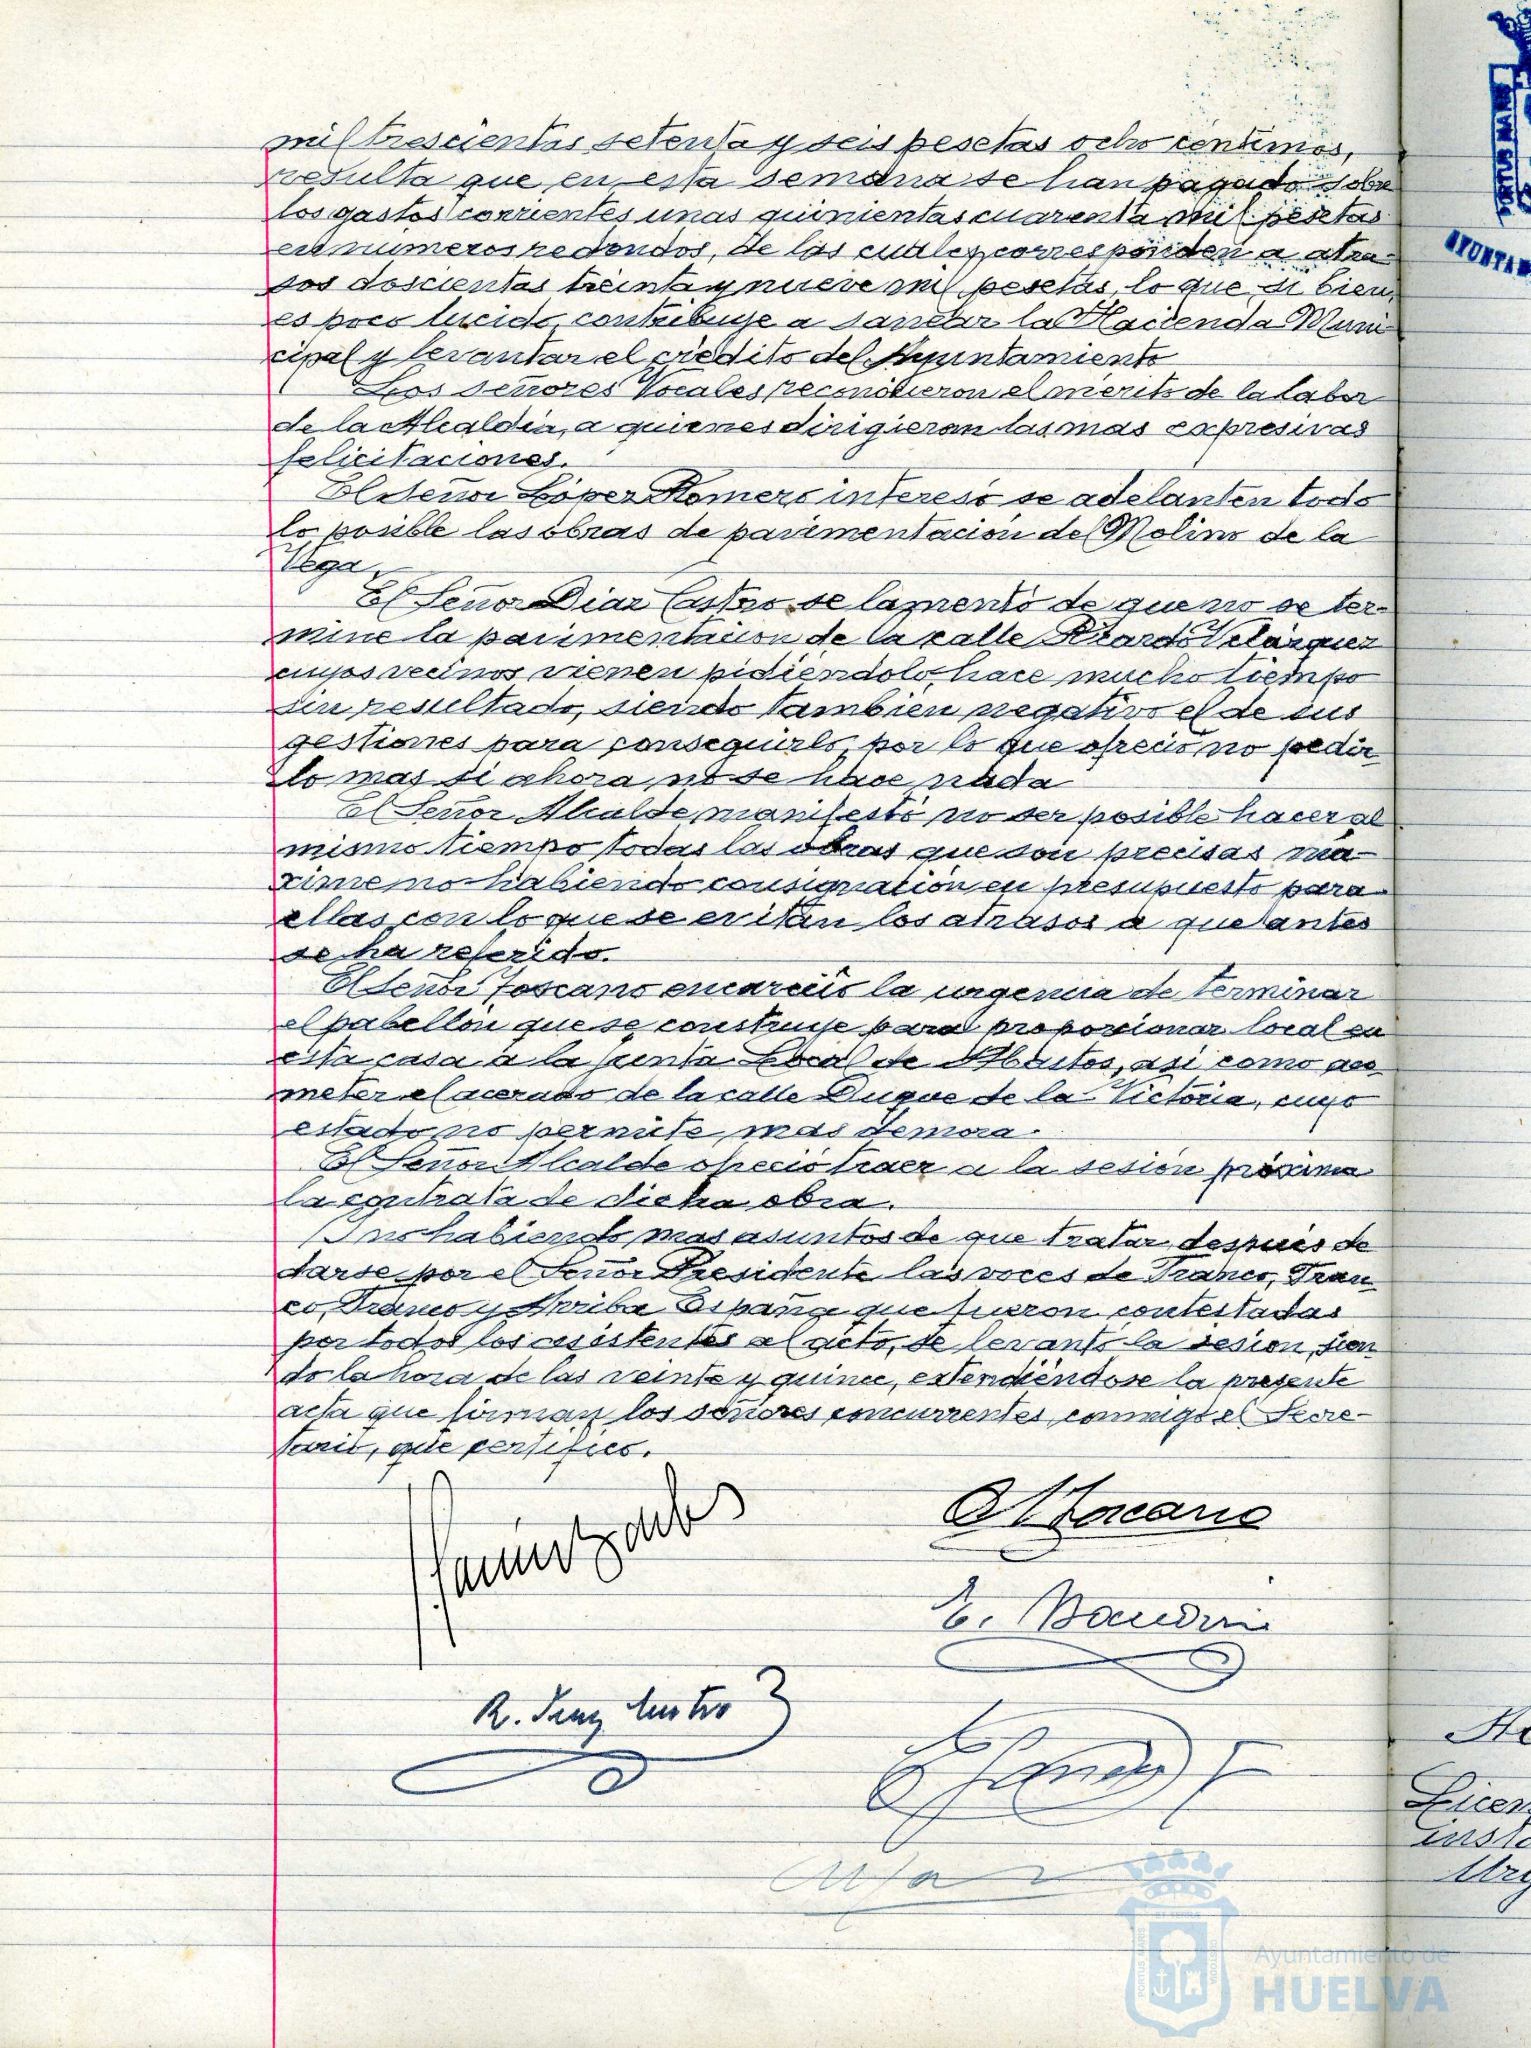 mil trescientas setenta y seis pesetas ocho centimos,
resulta que en esta semana se han pagado sobre
los gastos corrientes unas quinientas cuarenta mil pesetas
en numeros redondos, de las cuales corresponden a atra-
sos doscientas treinta y nueve mil pesetas, lo que si bien
es poco lucido, contribuye a sanear la Hacienda Muni-
cipal y levantar el crédito del Ayuntamiento
Los señores Vocales reconocieron el mérito de la labor
de la Alcaldía, a quienes dirigieron las mas expresivas
felicitaciones.
El señor López Romero interesó se adelanten todo
lo posible las obras de pavimentación del Molino de la
Vega.
El Señor Diaz Castro se lamentó de que no se ter-
mine la pavimentación de la calle Ricardo Velázquez
cuyos vecinos vienen pidiéndolo hace mucho tiempo
sin resultado, siendo tambien negativo el de sus
gestiones para conseguirlo, por lo que ofreció no pedir-
lo mas si ahora no se hace nada
El Señor Alcalde manifestó no ser posible hacer al
mismo tiempo todas las obras que son precisas má-
xime no habiendo consignación en presupuesto para
ellas con lo que se evitan los atrasos a que antes
se ha referido.
El señor Toscano encareció la urgencia de terminar
el pabellón que se construye para proporcionar local en
esta casa a la Junta Local de Abastos, asi como aco-
meter el acerado de la calle Duque de la Victoria, cuyo
estado no permite mas demora.
El Señor Alcalde ofreció traer a la sesión próxima
la contrata de dicha obra.
Y no habiendo mas asuntos de que tratar, despues de
darse por el Señor Presidente las voces de Franco, Fran-
co, Franco y Arriba España que fueron contestadas
por todos los asistentes al acto, se levantó la sesion, sien-
do la hora de las veinte y quince, extendiéndose la presente
acta que firman los señores concurrentes, conmigo el Secre-
tario, que certifico.
Toscano
R. Diaz Castro
PORTUS MARIS
AYUNTAM
Licen
insta
Urg
Ayuntamiento de
HUELVA